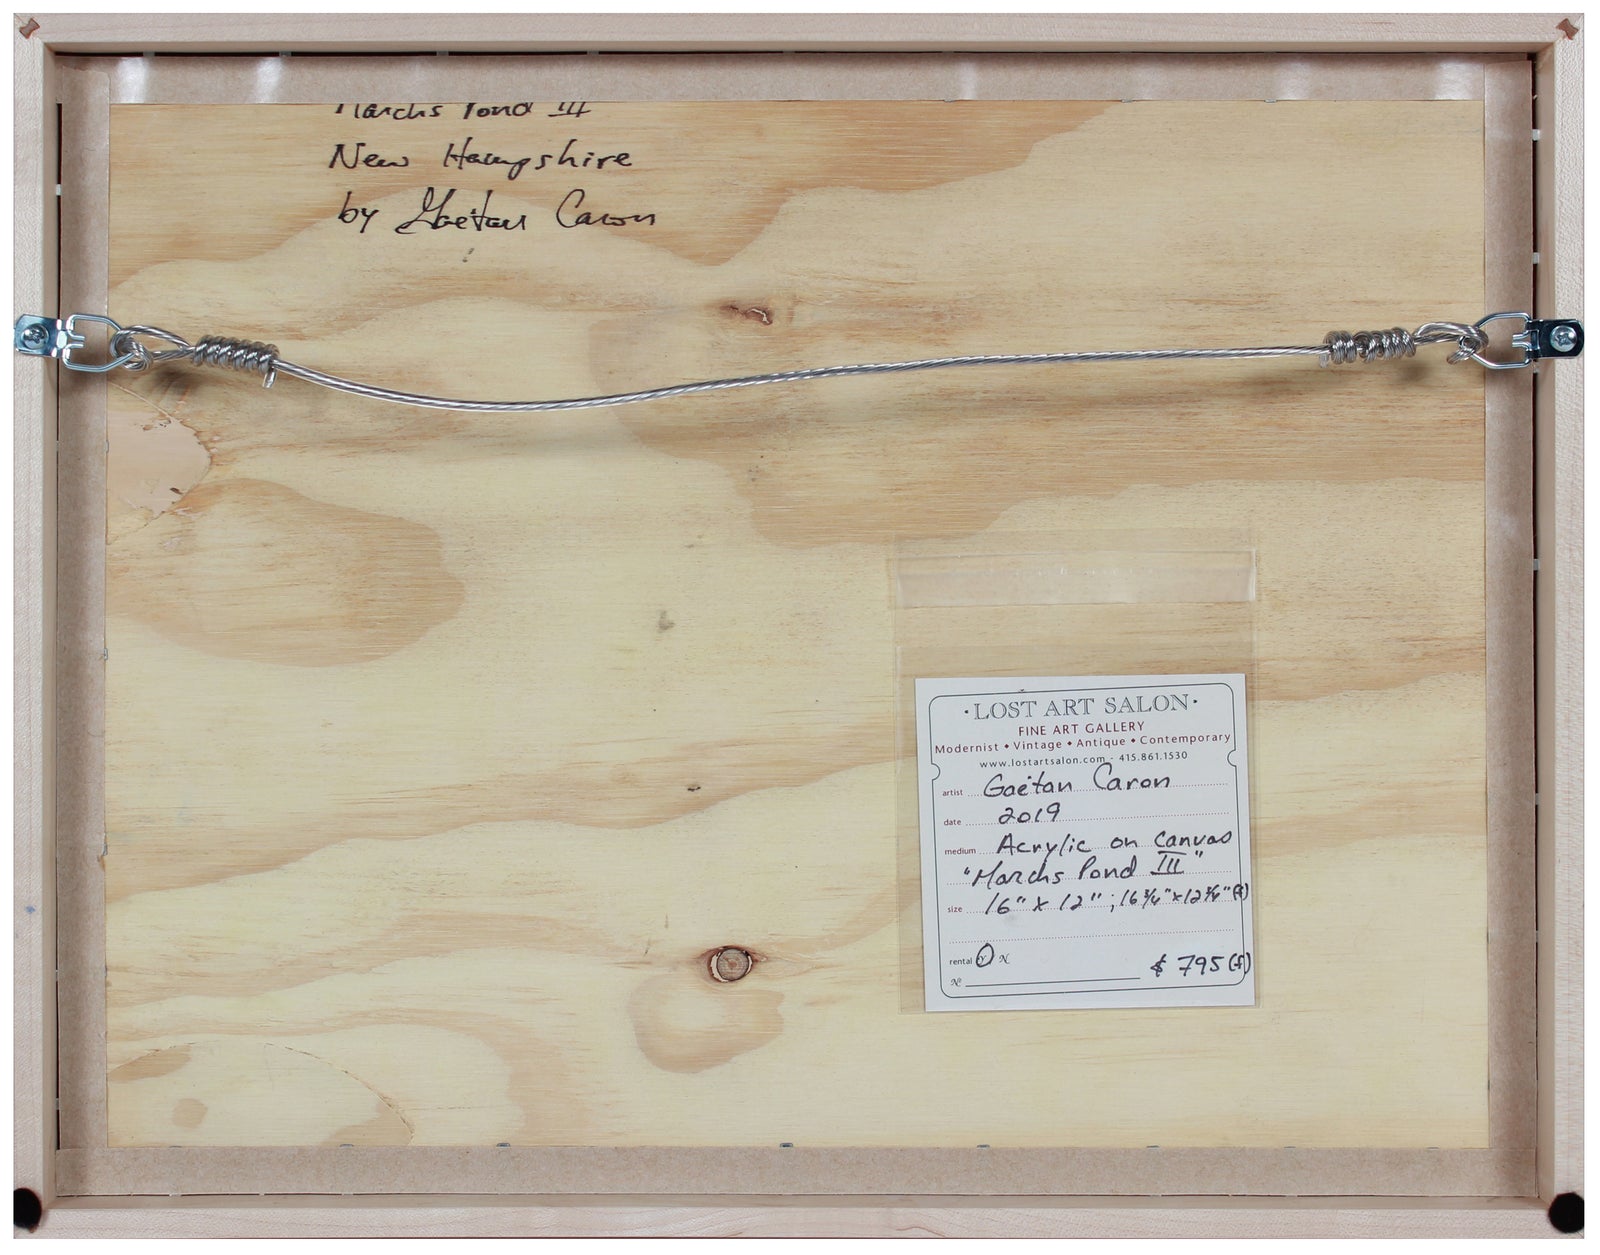 Marchs Pond III
New Hampshire
by Gaëtan Caron
·LOST ART SALON·
FINE ART GALLERY
Modernist ◆ Vintage ◆ Antique ◆ Contemporary
www.lostartsalon.com - 415.861.1530
artist Gaëtan Caron
date 2019
medium Acrylic on canvas
"Marchs Pond III"
size 16" x 12" ; 16 3/4" x 12 3/4" (f)
rental Y N
№ $ 795 (f)